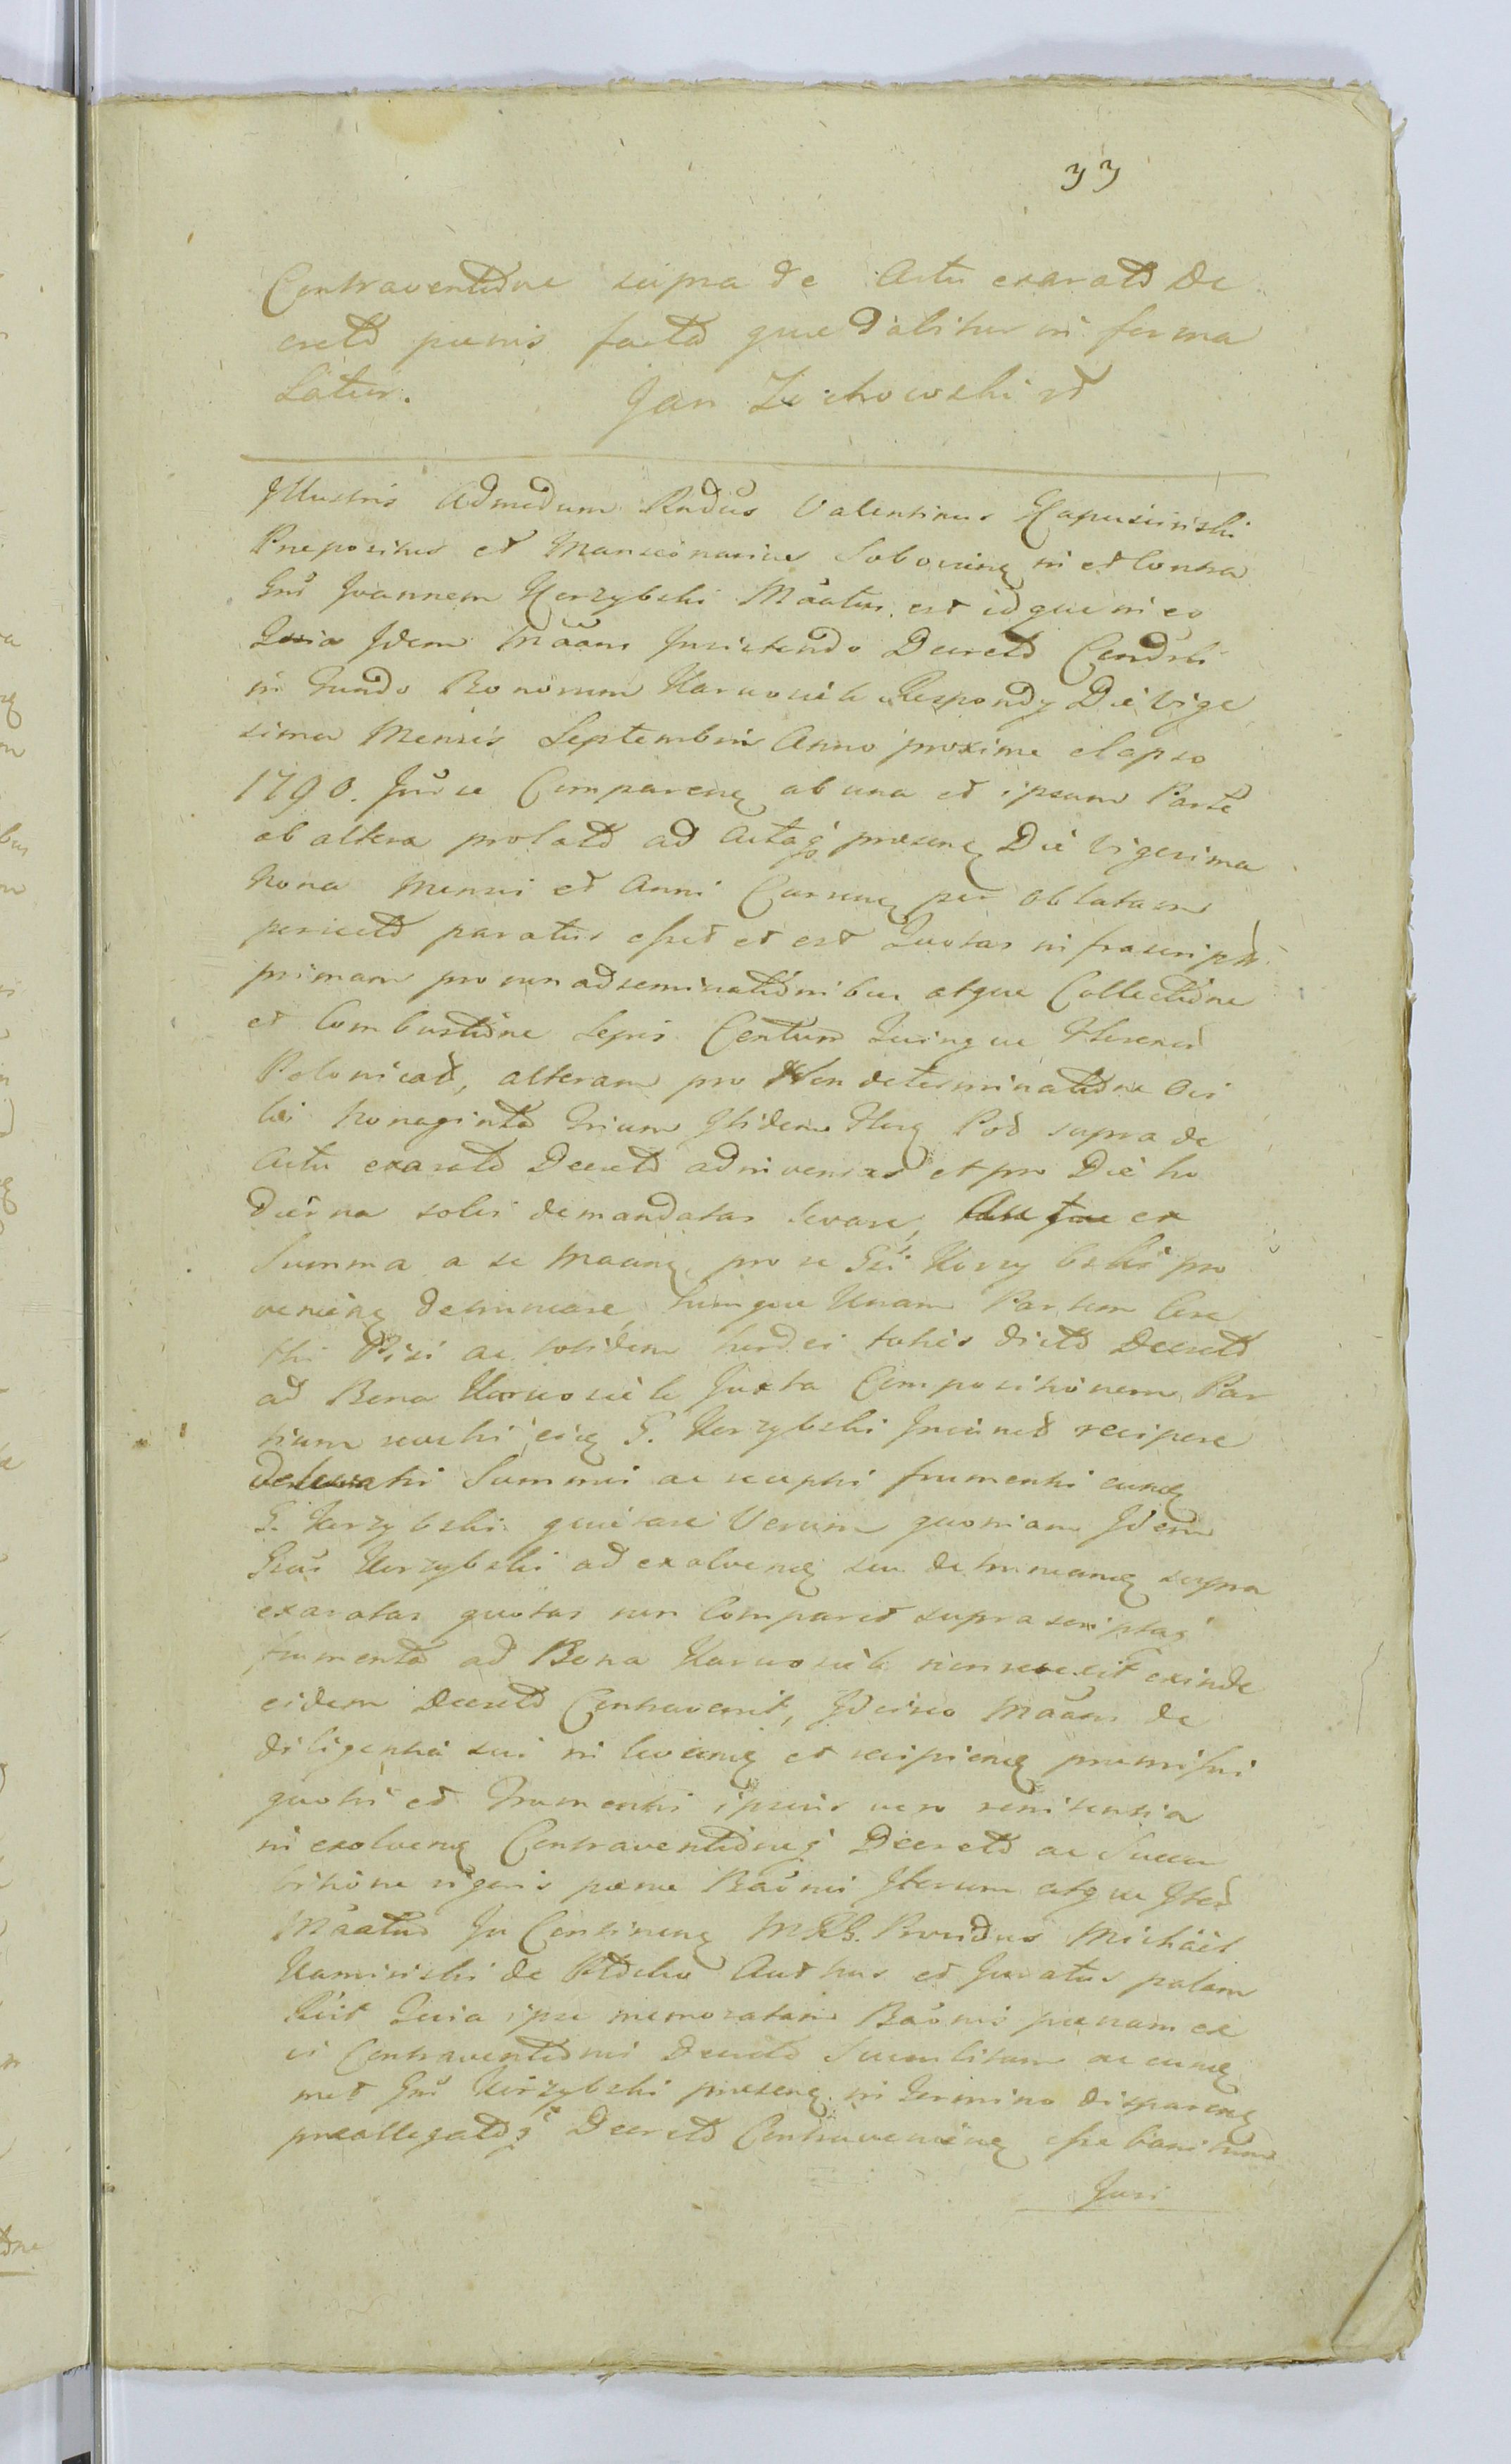 33
Contraventione supra de Actu exarato De
creto pœnis facto quæ dabitur in forma
Latius. Jan Zochowski
Illustris Admodum Rndus Valentinus Kapuscinski
Præpositus et Mansionarius in et Contra
Gnu Joannem Korzybski Maatus est idque in eo
Quia Idem Maans Insistendo Decreto Condrli
in fundo Bonorum Karwosieki Die Vige
sima Mensis Septembris Anno proxime elapso
1790. Inr se Comparens ab una et ipsum Parte
ab altera prolato ad Actaq presens Die Vigesima
Nona Mensis et Anni Currens per oblatam
porrecto paratus esset et est Quotas infrascriptas
primam pro inadseminationibus atque Collectione
et Combustione Sepis Centum Quinque Florenos
Polonicad, alteram pro Non determinatione
Nonaginta Trium Itidem Flor Pod supra de
Actu exarato Decreto adinventas et pro Die ho
dierna solvi demandatas levare, ex
Summa a se Maans pro se Gsi Korzybski pro
veniens detruncare, hincque Unam Partem
Pisi ac totidem hordei tohis dicto Decreto
ad Bona Karwosieki Juxta Compositionem Par
tium revehi G. Korzybski recipere
Summis ac recepti frumenti eunq
G. Korzybski quietare Verum quoniam Idem
Gsus Korzybski ad exolvens seu detruncans supra
exaratas quotas non Comparet suprascriptaq
frumenta ad Bona Karwosieki non revexit exinde
eidem Decreto Contravenit, Idcirco Maans de
diligentia sui in levans et recipiens præmissi
quoti et Frumenti ipsius vero renitentia
in exolvens Contraventioneq Decreto ac Succu
bitione rigoris pœnæ Baonis Iterum atque Iter
Maatus In Continens MRS. Providus Michael
Kaminski de Authus et Juratus palam
Quia ipse memoratam Baonis pœnam ex
vi Contraventionis Decreto Succubitam ac eunq
met Gnu Korzybski presens in Termino disparens
præallegatoq Decreto Contraveniens esse banitum
Juri